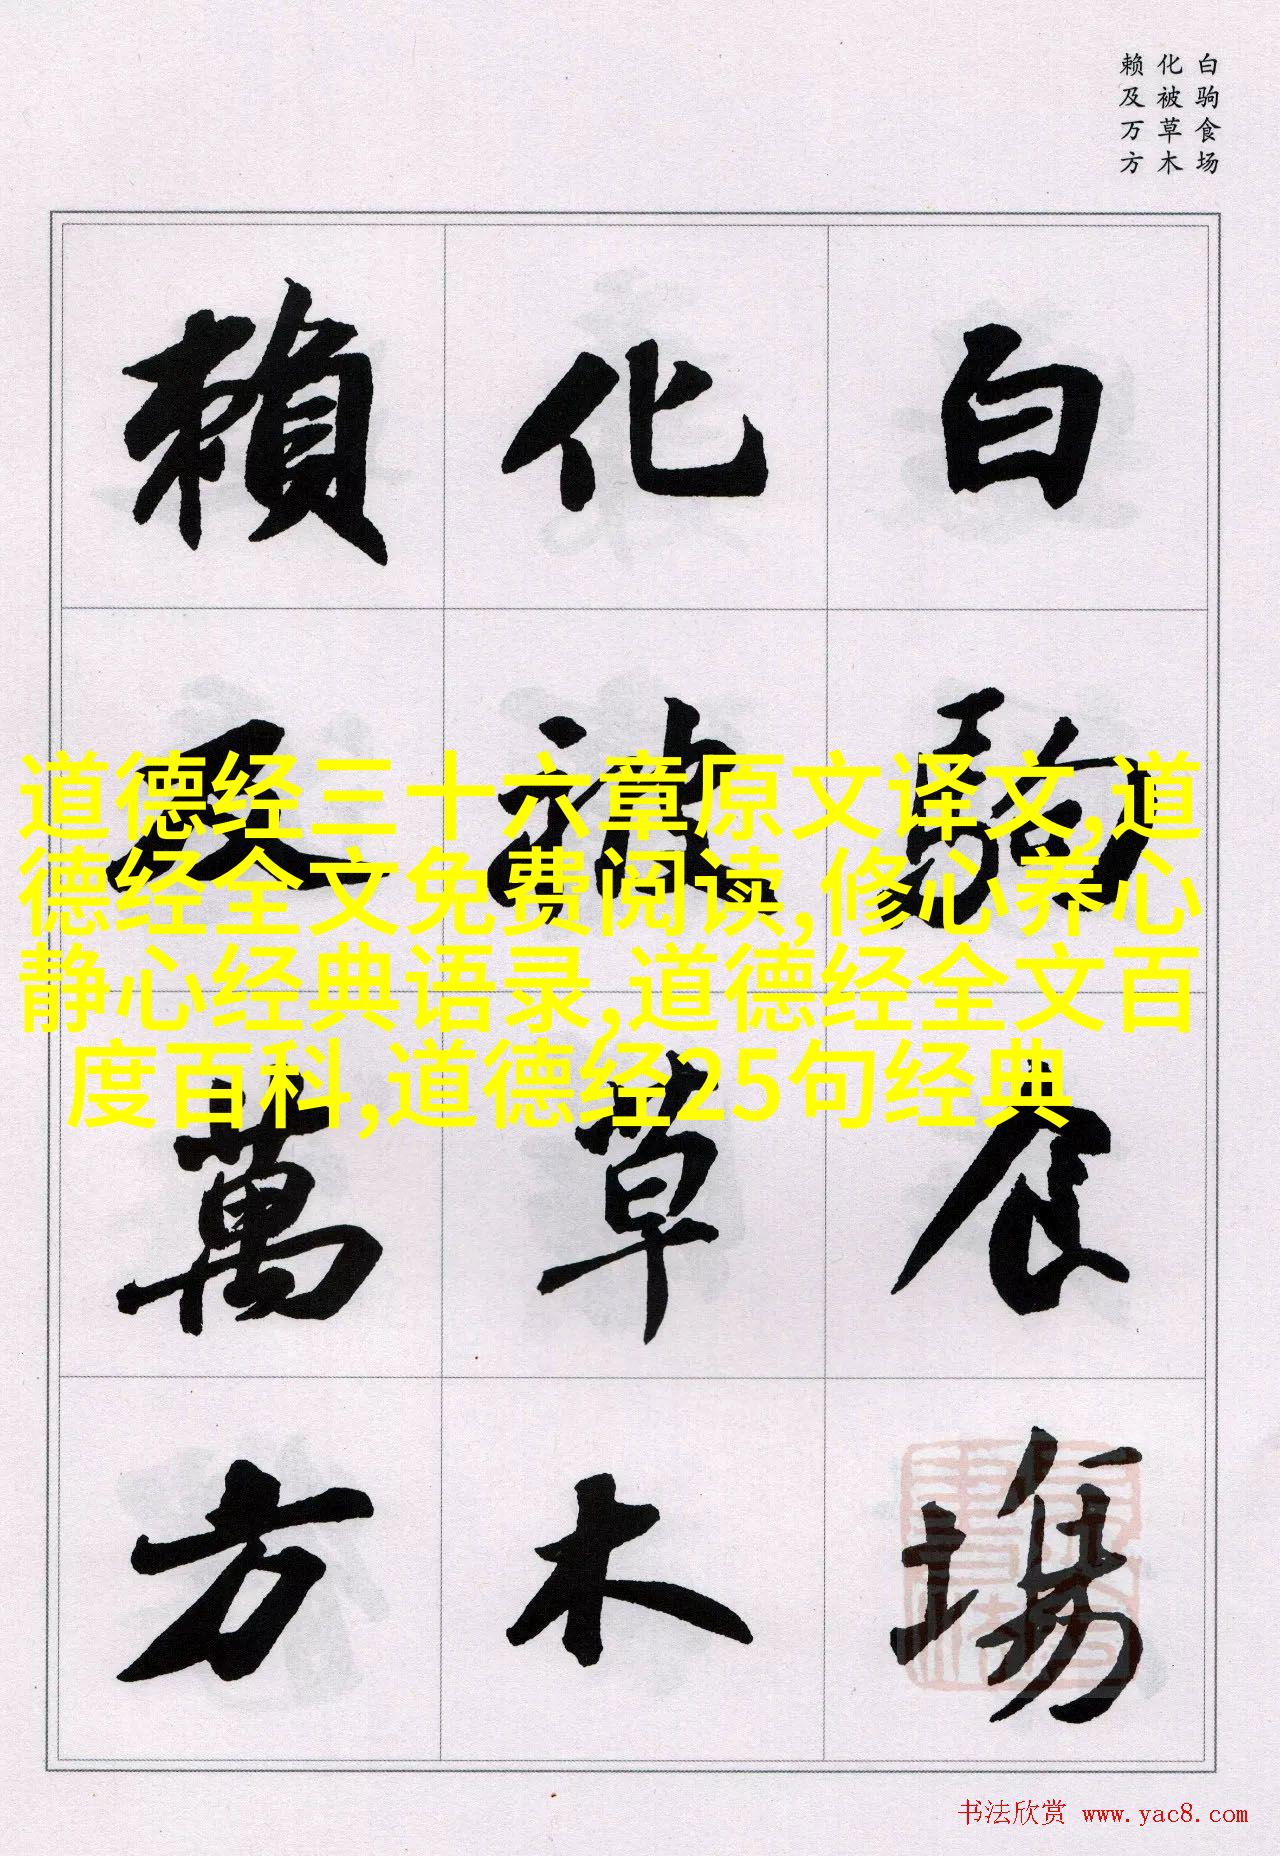 白驹食场
化被草木
赖及万方
白駒食場
化被草木
賴及萬方
道德经三十六章原文译文,道
德经全文免费阅读,修心养心
静心经典语录,道德经全文百
度百科,道德经25句经典
书法欣赏 www.yac8.com